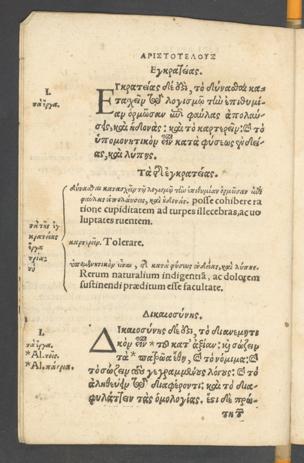 ΑΡΙΣΤΟΤΕΛΟΥΣ
Ἐγκρατείας.
1.
τὰ ἔργα.
Ἐγκρατείας δέ ἐστι, τὸ δύνασθαι κα-
τασχεῖν τῷ λογισμῷ τὴν ἐπιθυμί-
αν ὁρμῶσαν ἐπὶ φαύλας ἀπολαύ-
σεις, καὶ ἡδονάς: καὶ τὸ καρτερεῖν: καὶ τὸ
ὑπομονητικὸν εἶναι τῆς κατὰ φύσεως ἐνδεί-
ας, καὶ λύπης.
Τὰ τῆς ἐγκρατείας.
δύνασθαι κατασχεῖν τῷ λογισμῷ τὴν ἐπιθυμίαν ὁρμῶσαν ἐπὶ
φαύλας ἀπολαύσεις, καὶ ἡδονάς. posse cohibere ra
tione cupiditatem ad turpes illecebras, ac uo
luptates ruentem.
καρτερεῖν. Tolerare.
ὑπομονητικὸν εἶναι τῆς κατὰ φύσεως ἐνδείας, καὶ λύπης.
Rerum naturalium indigentiæ, ac dolorem
sustinendi præditum esse facultate.
Δικαιοσύνης.
1.
τὰ ἔργα.
*Al. τοῖς.
*Al. πάτρια.
Δικαιοσύνης δέ ἐστι, τὸ διανεμητι
κὸν εἶναι * τοῦ κατ' ἀξίαν: καὶ σώζειν
τὰ * πατρῷα ἔθη, καὶ τὰ νόμιμα: καὶ
τὸ σώζειν τοὺς γεγραμμένους λόγους: καὶ τὸ
ἀληθεύειν ἐν τῷ διαφέροντι: καὶ τὸ δια-
φυλάττειν τὰς ὁμολογίας. ἔστι δὲ πρώ-
τη τῶν